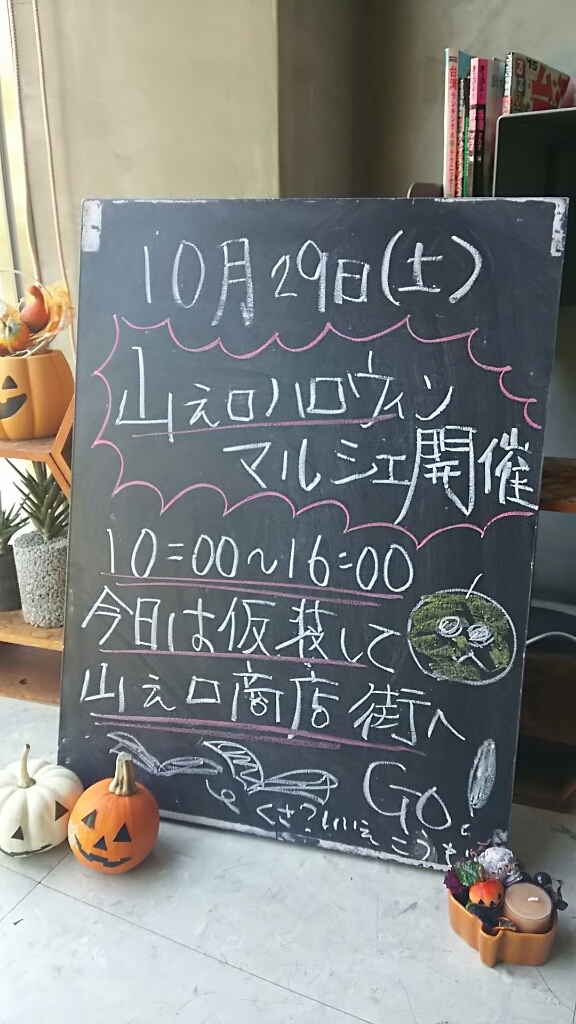 10月29日(土)
山えロハロウィン
マルシェ開催
10:00〜16:00
今日は仮装して
山えロ商店街へ
Go!
くさ?いいえ こうもり